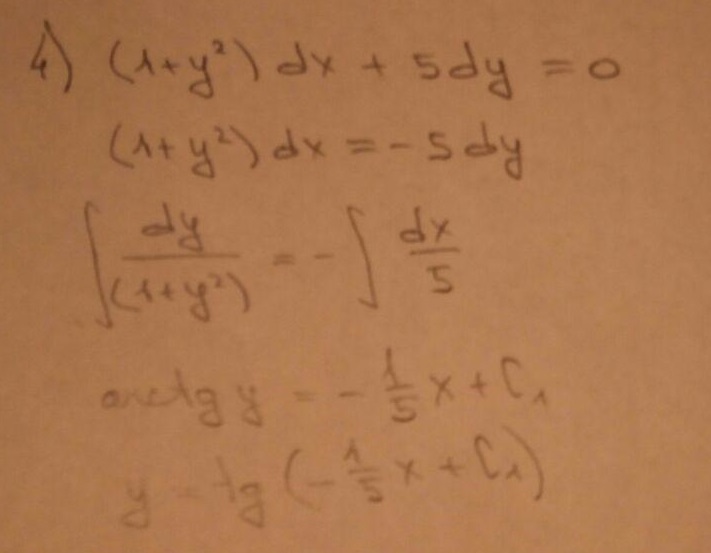 4) (1+y²) dx + 5dy = 0
(1+y²) dx = - 5 dy
∫ dy/(1+y²) = - ∫ dx/5
arctg y = - 1/5 x + C₁
y = tg (- 1/5 x + C₁)